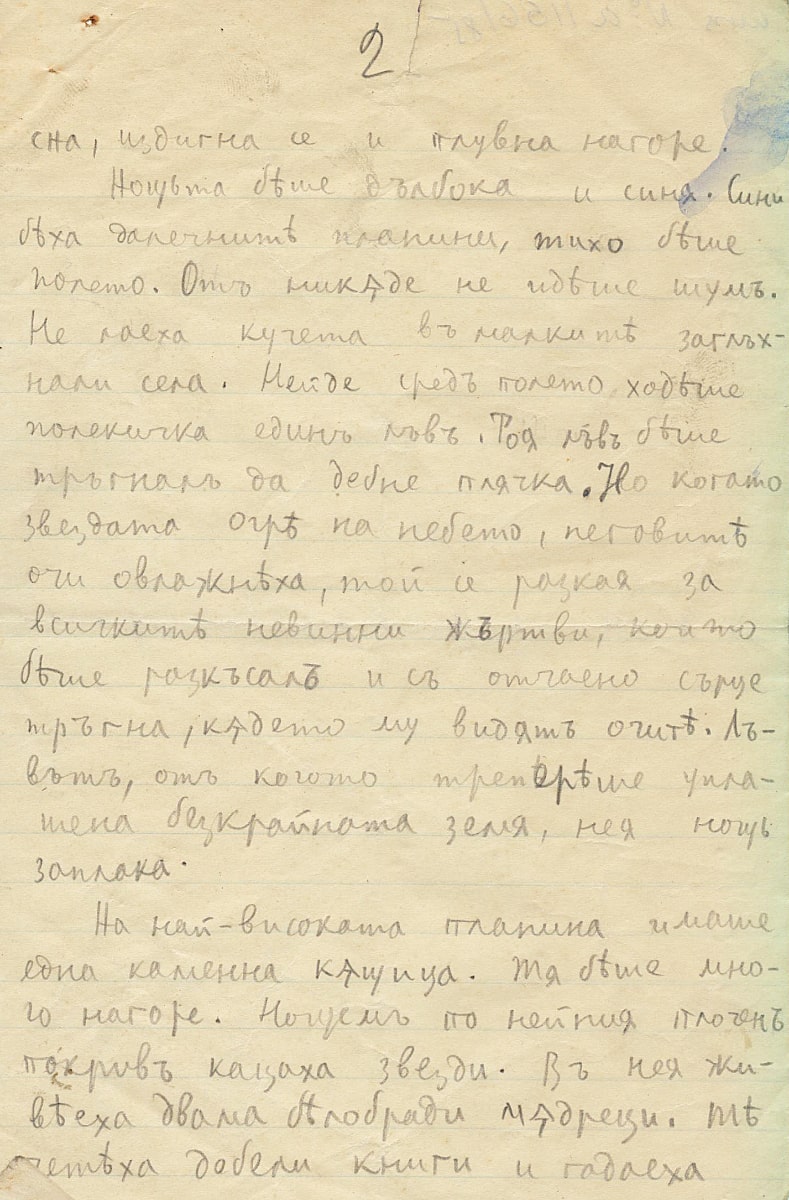 2
сна, издигна се и плувна нагоре.
Нощьта бѣше дълбока и синя. Сини
бѣха далечнитѣ планини, тихо бѣше
полето. Отъ никѫде не идѣше шумъ.
Не лаеха кучета въ малкитѣ заглъх-
нали села. Нейде средъ полето ходѣше
полекичка единъ лъвъ. Тоя лъвъ бѣше
тръгналъ да дебне плячка. Но когато
звездата огрѣ на небето, неговитѣ
очи овлажнѣха, той се разкая за
всичкитѣ невинни жъртви, които
бѣше разкъсалъ и съ отчаено сърце
тръгна, кѫдето му видятъ очитѣ. Лъ-
вътъ, отъ когото треперѣше упла-
шена безкрайната земя, нея нощь
заплака.
На най-високата планина имаше
една каменна кѫщица. Тя бѣше мно-
го нагоре. Нощемъ по нейния плоченъ
покривъ кацаха звезди. Въ нея жи-
вѣеха двама бѣлобради мѫдреци. Тѣ
четѣха дебели книги и гадаеха